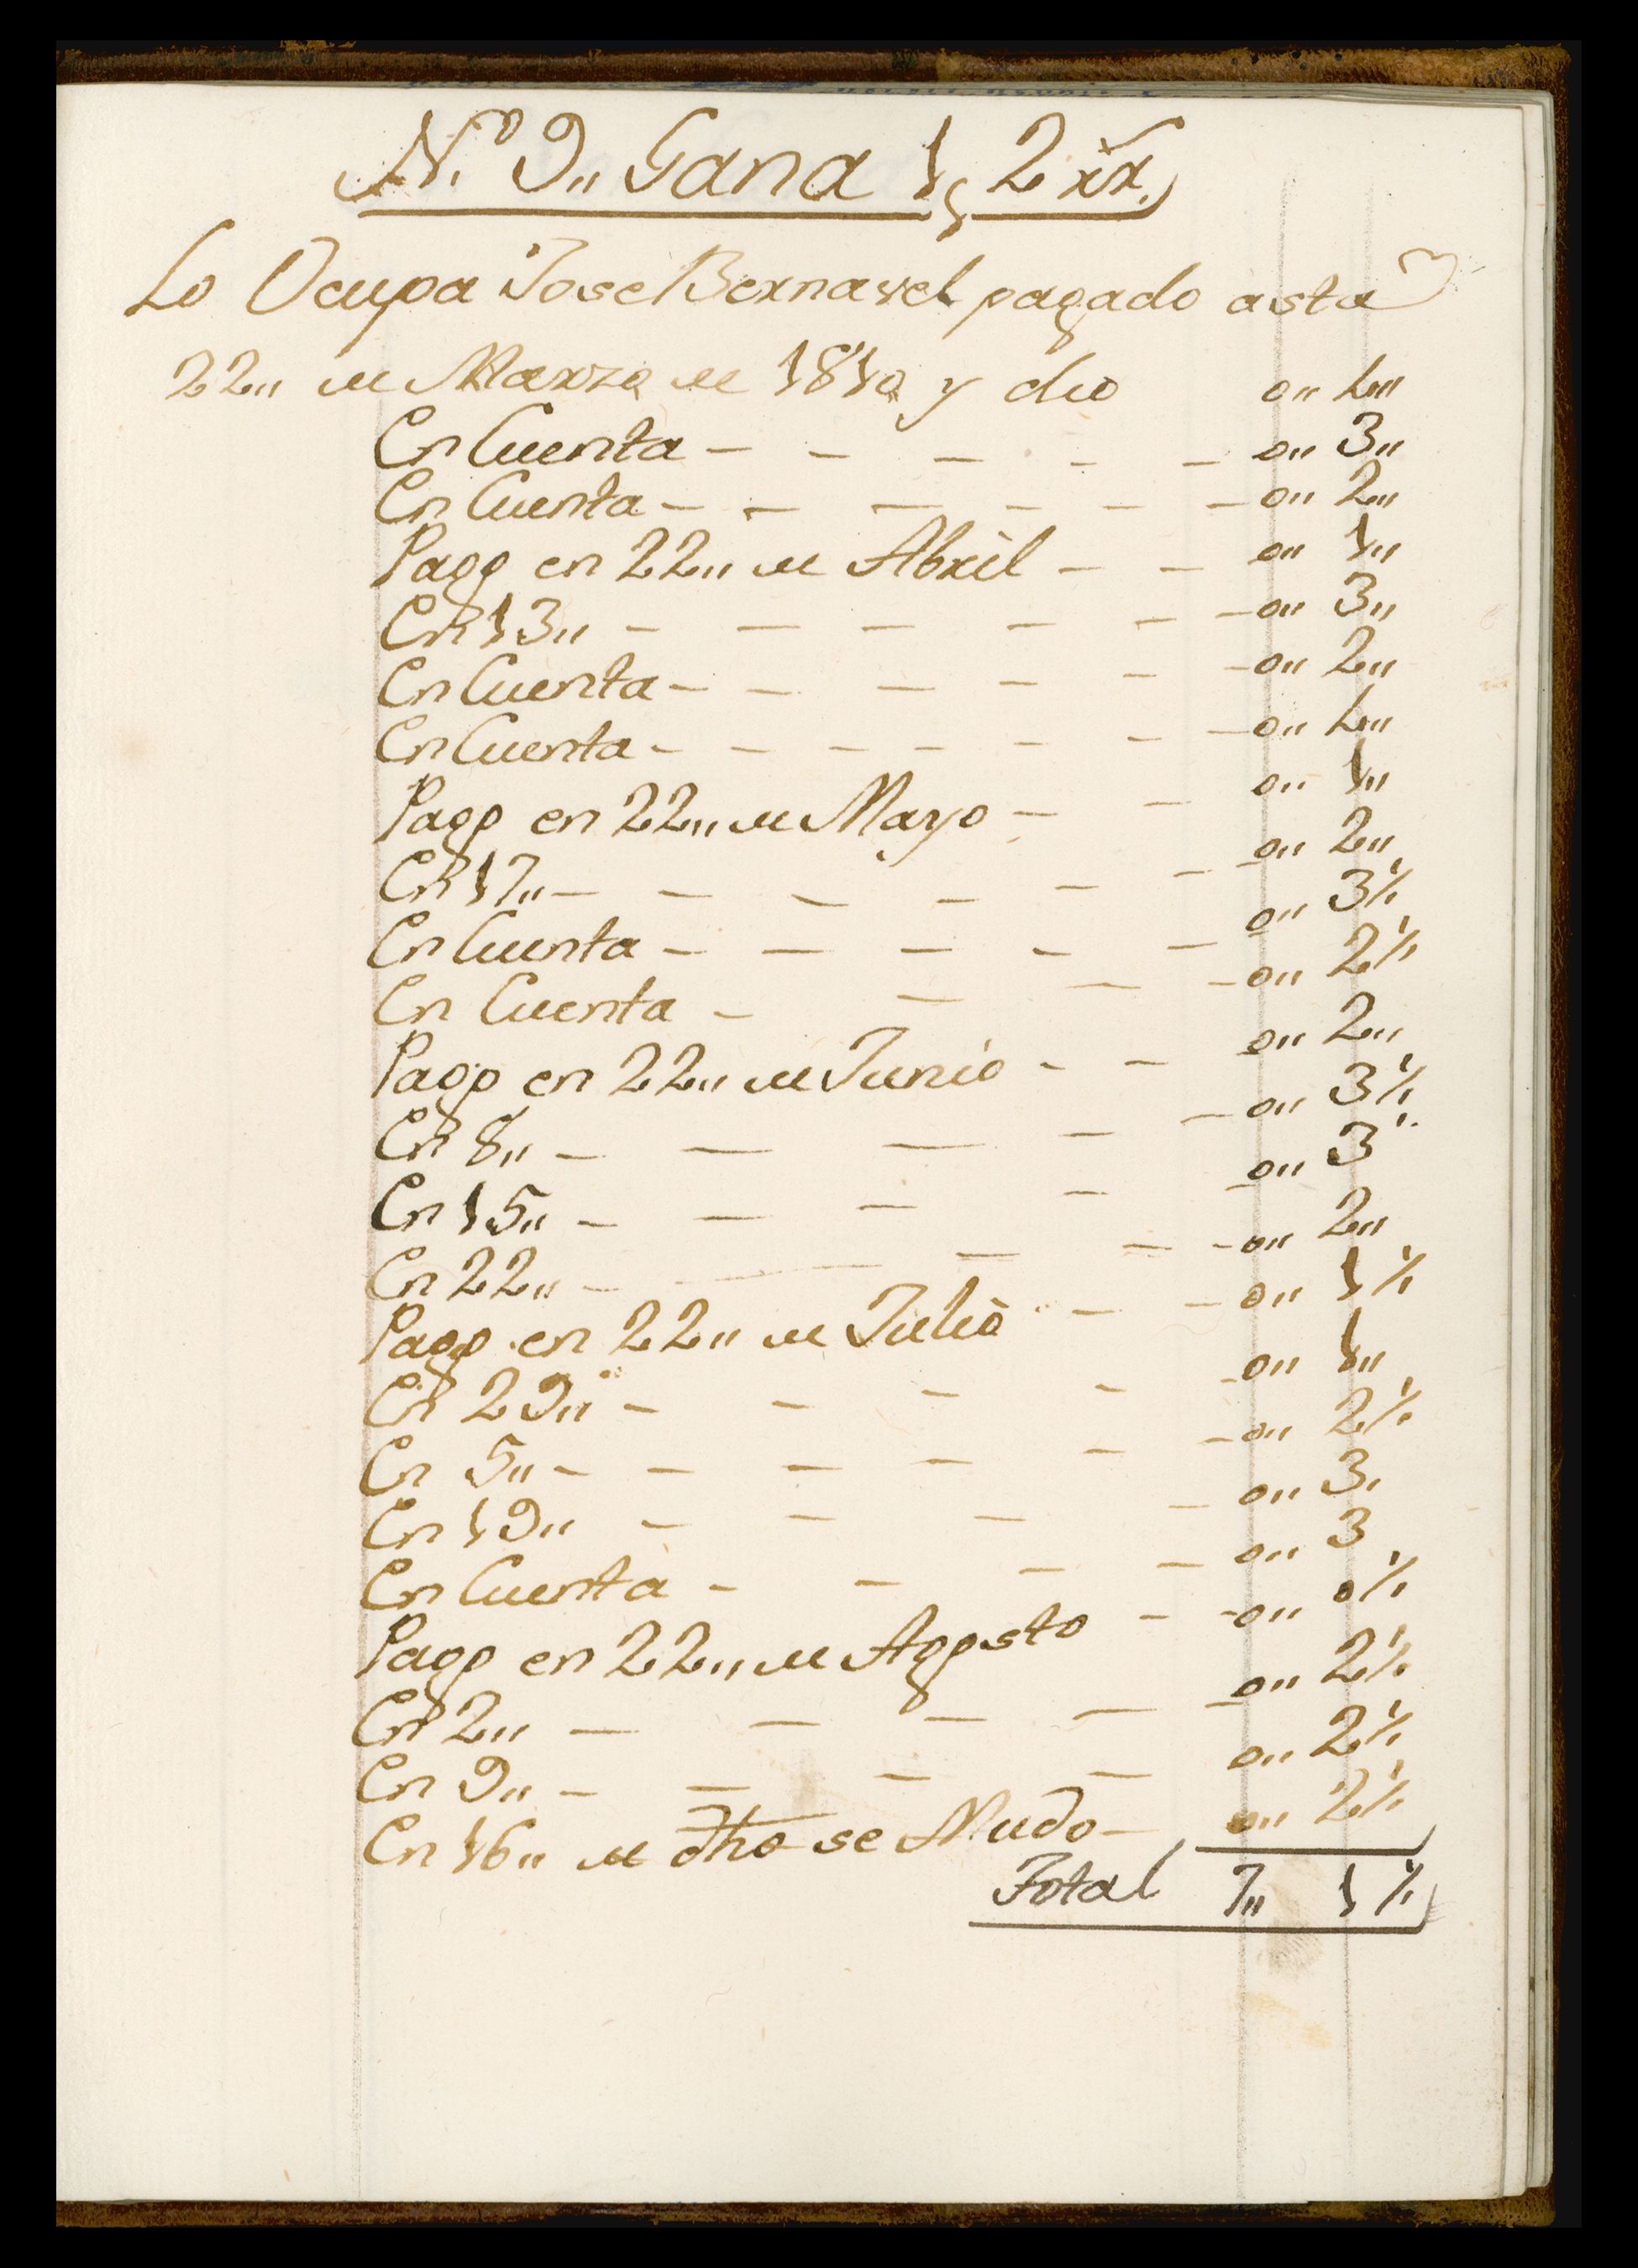 N.º 9,, Gana 1, 2 rr.
Lo Ocupa Jose Bernavel pagado asta
22,, de Marzo de 1810 y dio 0,, 4,,
En Cuenta — — — — — 0,, 3,,
En Cuenta — — — — — — 0,, 2,,
Pago en 22,, de Abril — — 0,, 1,,
En 13,, — — — — — — 0,, 3,,
En Cuenta — — — — — — 0,, 2,,
En Cuenta — — — — — — — 0,, 4,,
Pago en 22,, de Mayo — — 0,, 1,,
En 17,, — — — — — — — 0,, 2,,
En Cuenta — — — — — 0,, 3½
En Cuenta — — — — 0,, 2½
Pago en 22,, de Junio — — 0,, 2,,
En 8,, — — — — — 0,, 3½
En 15,, — — — — — 0,, 3,,
En 22,, — — — — — 0,, 2,,
Pago en 22,, de Julio — — 0,, 1½
En 29,, — — — — — 0,, 1,,
En 5,, — — — — — — 0,, 2½
En 19,, — — — — 0,, 3,
En Cuenta — — — — 0,, 3
Pago en 22,, de Agosto — — 0,, 0½
En 2,, — — — — — 0,, 2½
En 9,, — — — — 0,, 2½
En 16,, de dho se Mudo — 0,, 2½
Total 7,, 1½